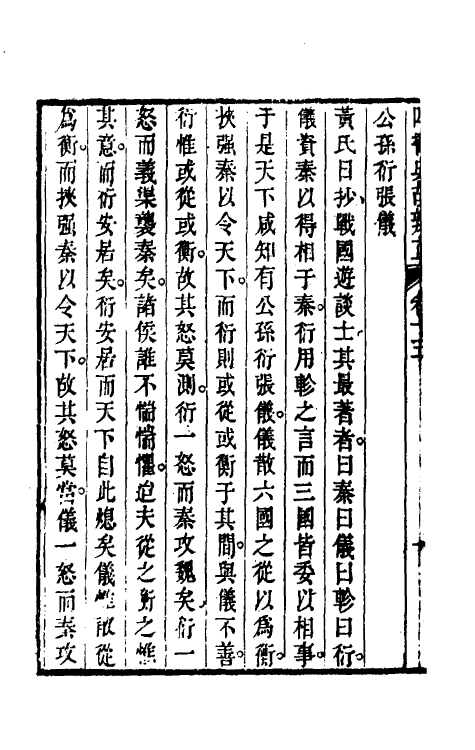 公孫衍張儀
黃氏日抄戰國遊談士其最著者。曰秦曰儀曰軫曰衍。
儀資秦以得相于秦。衍用軫之言而三國皆委以相事。
于是天下咸知有公孫衍張儀。儀散六國之從以為衡。
挾强秦以令天下。而衍則或從或衡于其間。與儀不善。
衍惟或從或衡。故其怒莫測。衍一怒而秦攻魏矣衍一
怒而義渠襲秦矣。諸侯誰不惴惴懼。迨夫從之衡之惟
其意。而衍安居矣。衍安居而天下自此熄矣儀惟散從
為衡。而挾强秦以令天下。故其怒莫當。儀一怒而秦攻